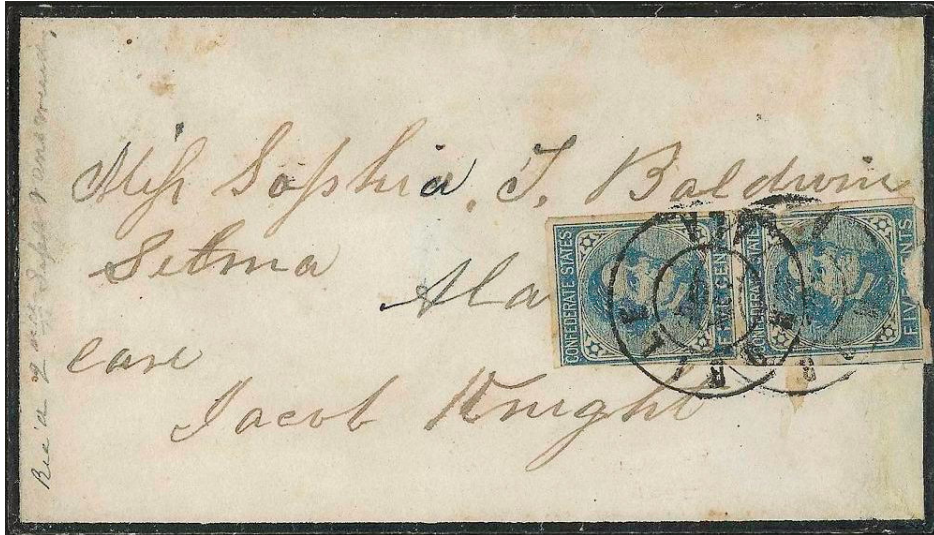 Miss Sophia. T. Baldwin
Selma
Ala
care
Jacob Knight
CONFEDERATE STATES
FIVE CENTS
CONFEDERATE STATES
FIVE CENTS